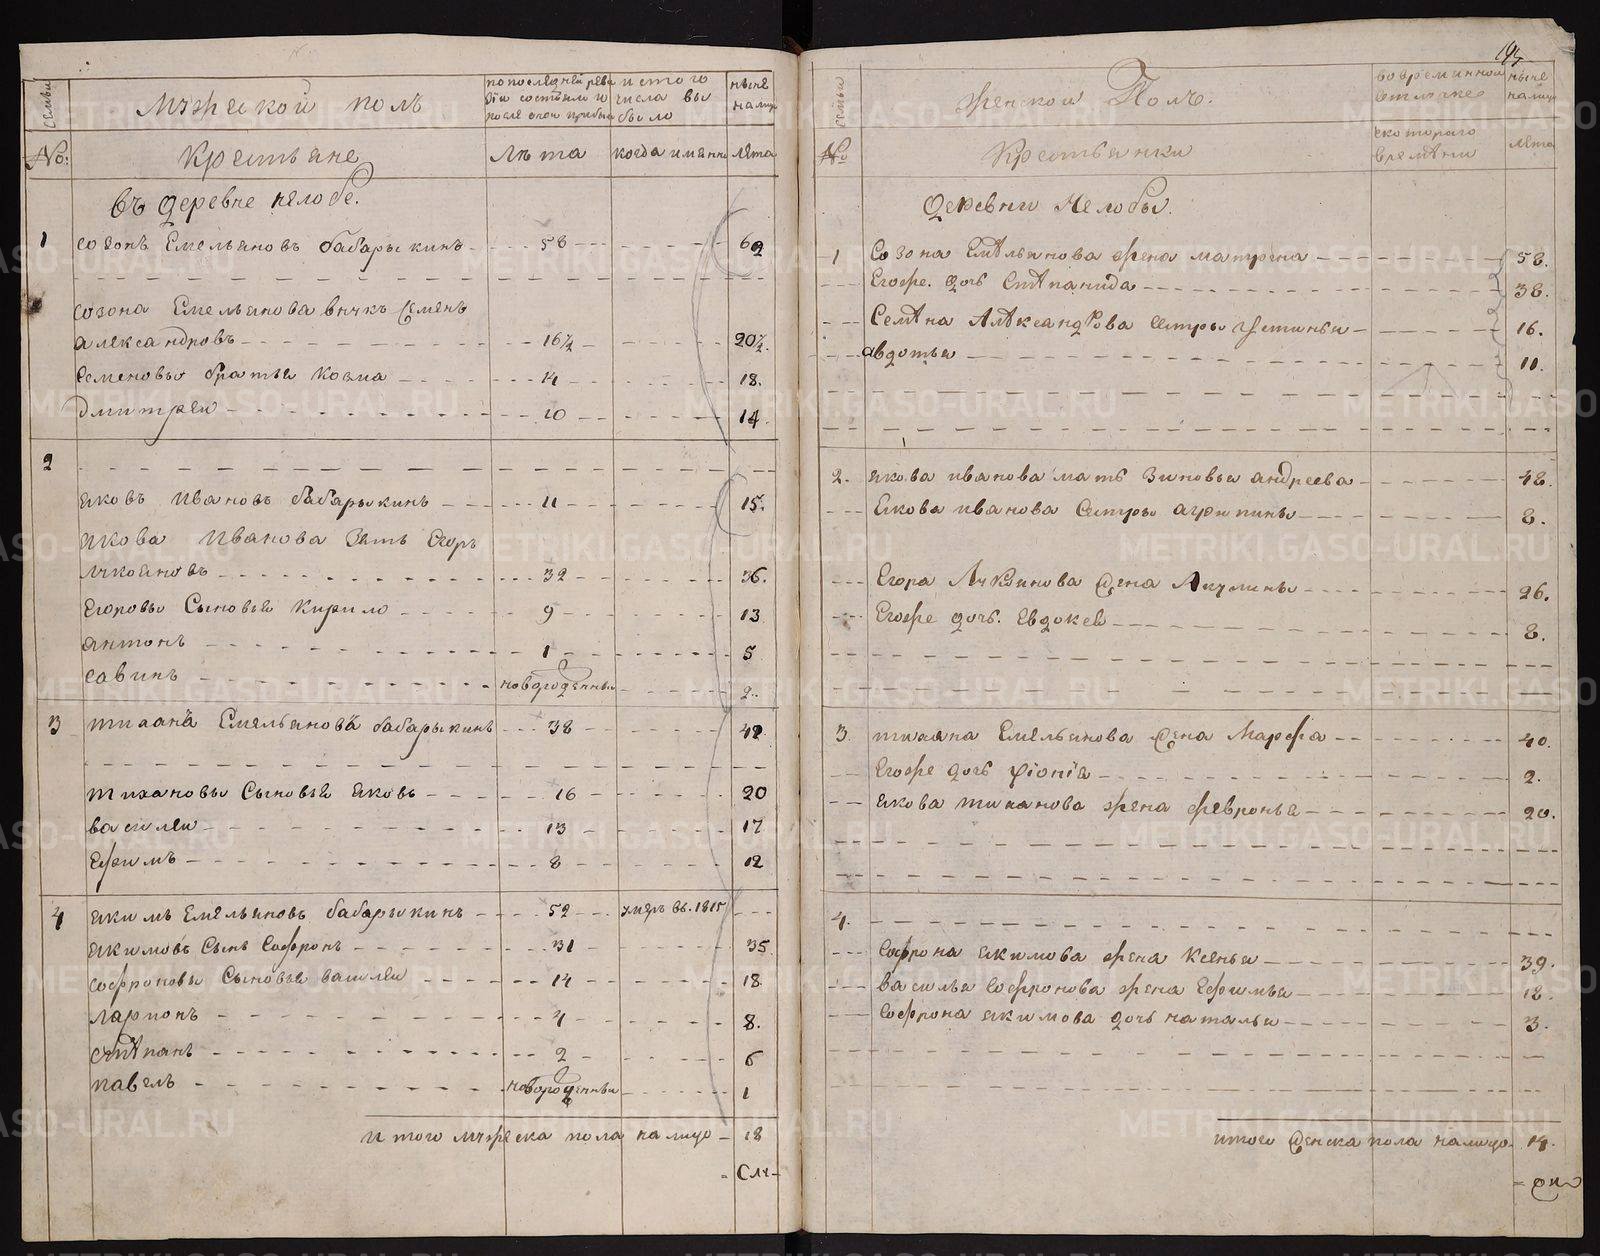 семьи
Мужескои полъ
по последней реви
зіи состояло и
после оной прибыло
и стого
числа вы
было
ныне
на лицо
№:
Крестьяне
Лѣта
когда именно
лѣта
въ деревне челобе.
1 созонъ Емельяновъ бабарыкинъ 58 62
созона Емельянова внукъ Семенъ
александровъ 16½ 20½.
Семеновы братья Козма 14 18.
дмитреи 10 14
2
яковъ Ивановъ бабарыкинъ 11 15.
якова Иванова Зять Егоръ
лукояновъ 32 36.
Егоровы Сыновья Кирило 9 13
антонъ 1 5
савинъ новорожденныи 2
3 тихонъ Емельяновъ бабарыкинъ 38 42
тихановы Сыновья яковъ 16 20
василеи 13 17
Ефимъ 8 12
4 якимъ Емельяновъ бабарыкинъ 52 умеръ въ. 1815
якимовъ Сынъ Софронъ 31 35
софроновы Сыновья василеи 14 18
ларионъ 4 8.
стѣпанъ 2 6
павелъ новорожденныи 1
и того мужеска пола на лицо 18
семьи
женскои Полъ.
во временной
отлучке
ныне
на лицо
№
Крестьянки
с котораго
времѣни
лѣта
деревни Челобы.
1 Созона Емѣльянова жена матрена 58.
Егоже. дочь Стѣпанида 38.
Семѣна Алѣксандрова сестры Устинья 16.
авдотья 11.
2. якова иванова мать Зиновья андреева 48.
якова иванова Сестры 8.
Егора Лукоянова жена Акулины 26.
Егоже дочь. Евдокея 8.
3. тихана Емельянова жена Марфа 40.
Егоже дочь фіонія 2.
якова тиханова жена февронья 20.
4.
Софрона якимова жена Ксенья 39.
василья Софронова жена Ефимья 18.
Софрона якимова дочь наталья 3.
итого женска пола налицо 14.